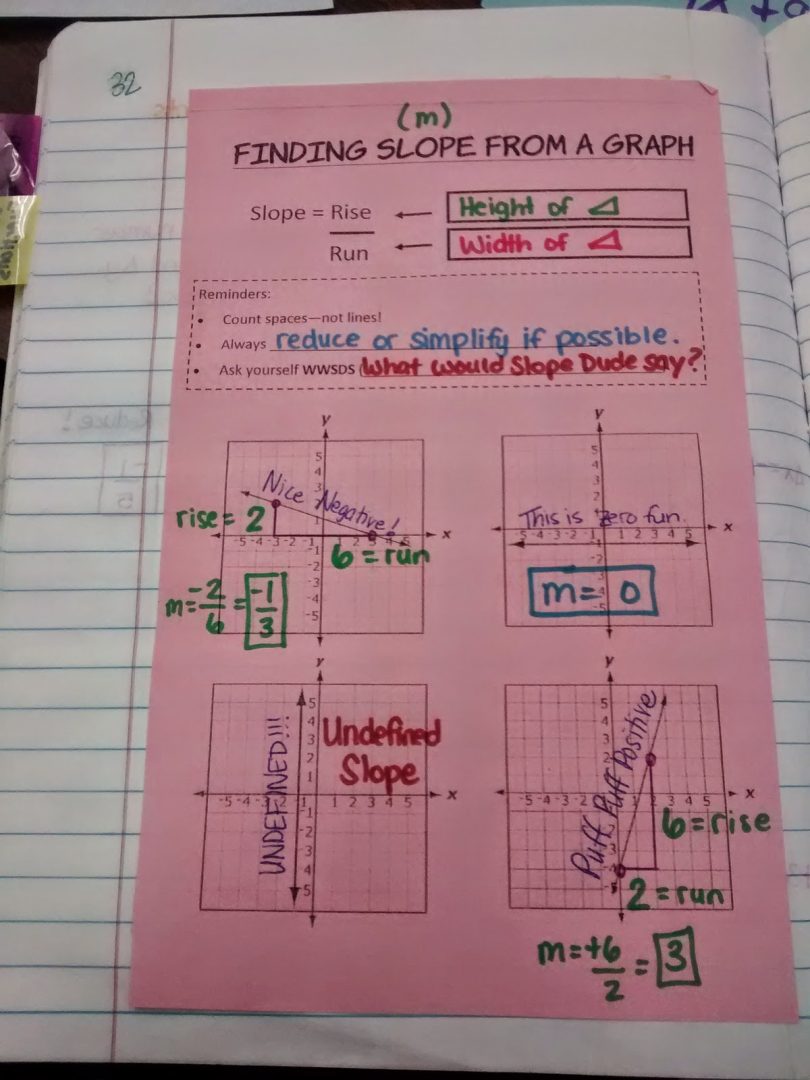 32
(m)
FINDING SLOPE FROM A GRAPH
Slope = Rise
Run
Height of
Width of
Reminders:
• Count spaces—not lines!
• Always reduce or simplify if possible.
• Ask yourself WWSDS (What would Slope Dude say?
y
5
4
3
2
1
Nice Negative!
rise = 2
x
-5 -4 -3 -2 3 4 5
-1
-2
-3
-4
-5
6 = run
m = -2/6 = -1/3
y
5
4
3
2
This is zero fun.
x
-5 -4 -3 -2 -1 1 2 3 4 5
-2
m = 0
y
5
4
3
2
1
UNDEFINED!!!
Undefined
Slope
x
-5 -4 -3 -2 -1 1 2 3 4 5
-1
-2
3
4
5
y
5
4
3
2
Puff Puff Positive
x
-5 -4 -3 -2 2 3 4 5
6 = rise
2 = run
m = +6/2 = 3